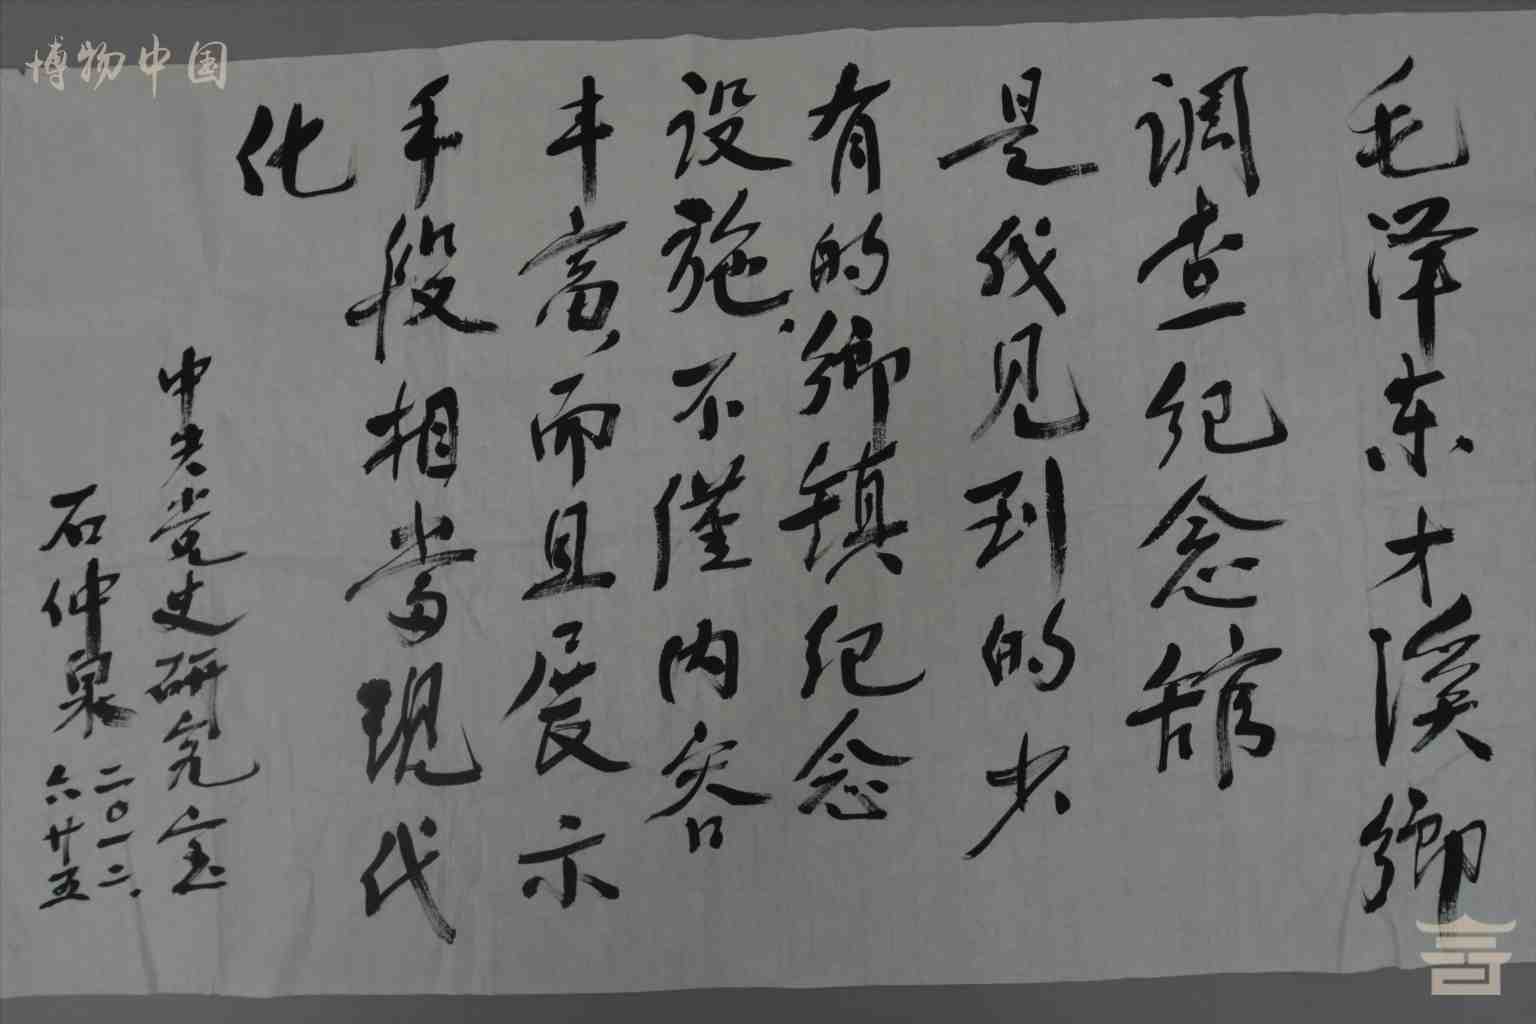 博物中国
毛泽东才溪鄉
调查纪念馆
是我见到的少
有的鄉镇纪念
设施，不僅内容
丰富，而且展示
手段相当现代
化
中央党史研究室
石仲泉
二〇一二．
六廿五